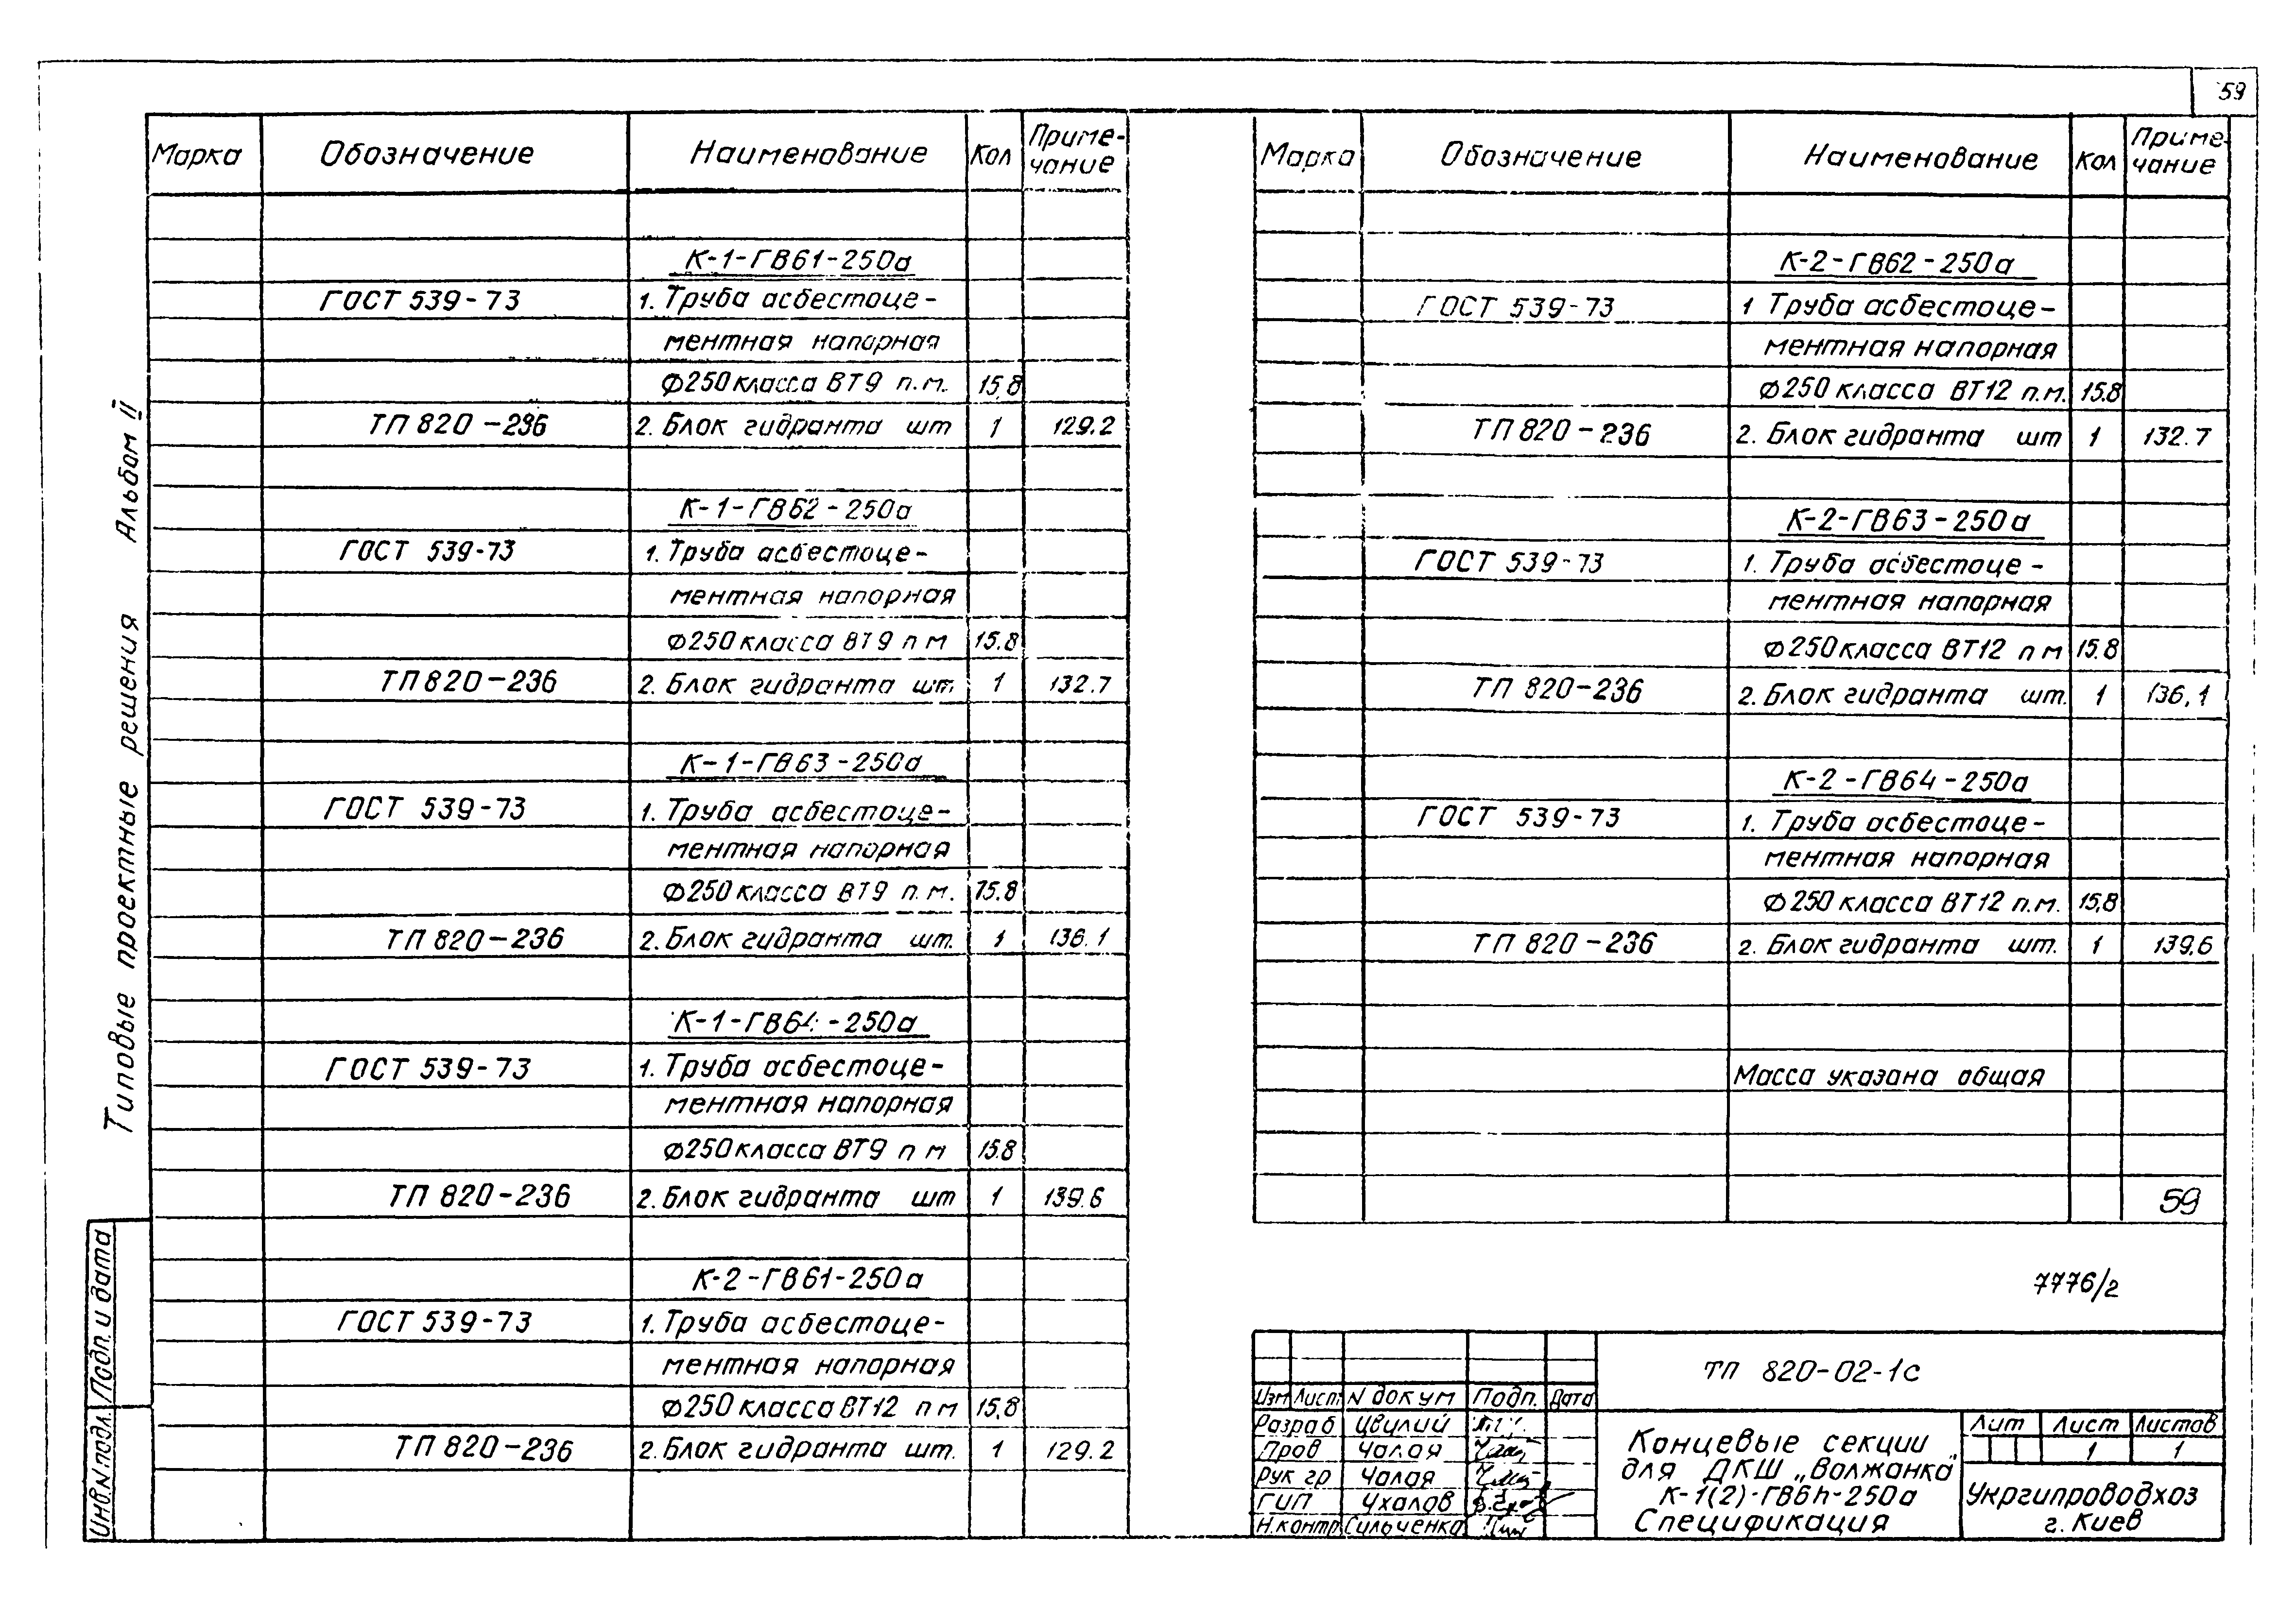 59
Типовые проектные решения Альбом II
Марка Обозначение Наименование Кол Приме-
чание
К-1-ГВ61-250а
ГОСТ 539-73 1. Труба асбестоце-
ментная напорная
Ф250 класса ВТ9 п.м. 15,8
ТП 820-236 2. Блок гидранта шт 1 129.2
К-1-ГВ62-250а
ГОСТ 539-73 1. Труба асбестоце-
ментная напорная
Ф250 класса ВТ9 п м 15.8
ТП 820-236 2. Блок гидранта шт. 1 132.7
К-1-ГВ63-250а
ГОСТ 539-73 1. Труба асбестоце-
ментная напорная
Ф250 класса ВТ9 п.м. 15.8
ТП 820-236 2. Блок гидранта шт. 1 136.1
К-1-ГВ64-250а
ГОСТ 539-73 1. Труба асбестоце-
ментная напорная
Ф250 класса ВТ9 п м 15.8
ТП 820-236 2. Блок гидранта шт 1 139.6
К-2-ГВ61-250а
ГОСТ 539-73 1. Труба асбестоце-
ментная напорная
Ф250 класса ВТ12 п м 15,8
ТП 820-236 2. Блок гидранта шт. 1 129.2
Марка Обозначение Наименование Кол Приме-
чание
К-2-ГВ62-250а
ГОСТ 539-73 1 Труба асбестоце-
ментная напорная
Ф250 класса ВТ12 п.м. 15.8
ТП 820-236 2. Блок гидранта шт 1 132.7
К-2-ГВ63-250а
ГОСТ 539-73 1. Труба асбестоце-
ментная напорная
Ф250 класса ВТ12 п м 15.8
ТП 820-236 2. Блок гидранта шт. 1 136,1
К-2-ГВ64-250а
ГОСТ 539-73 1. Труба асбестоце-
ментная напорная
Ф250 класса ВТ12 п.м. 15,8
ТП 820-236 2. Блок гидранта шт. 1 139.6
Масса указана общая
59
7776/2
ТП 820-02-1с
Изм Лист N докум Подп. Дата
Разраб Цвилий
Пров Чалая
Рук гр Чалая
ГИП Ухалов
Н.контр Сильченко
Концевые секции
для ДКШ „Волжанка"
К-1(2)-ГВ6h-250а
Спецификация
Лит Лист Листов
1 1
Укргипроводхоз
г. Киев
Инв.N подл. Подп. и дата